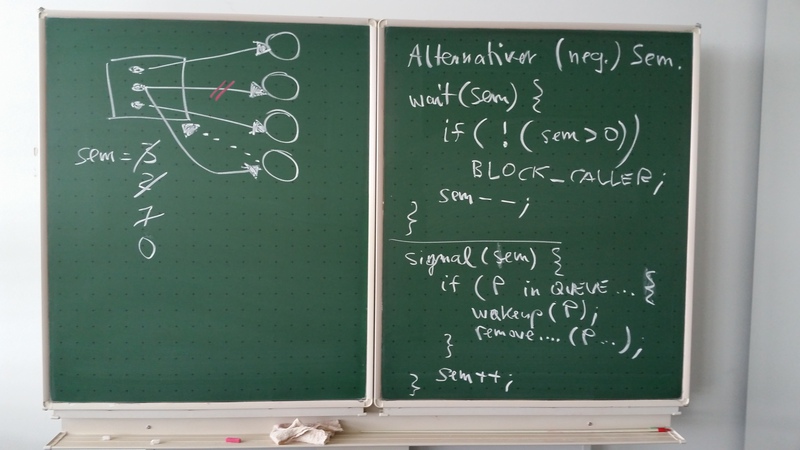 sem = 3
2
1
0
Alternativer (neg.) Sem.
wait(sem) {
if ( ! (sem > 0))
BLOCK_CALLER;
sem--;
}
signal(sem) {
if (P in QUEUE ... {
wakeup(P);
remove....(P...);
}
} sem++;